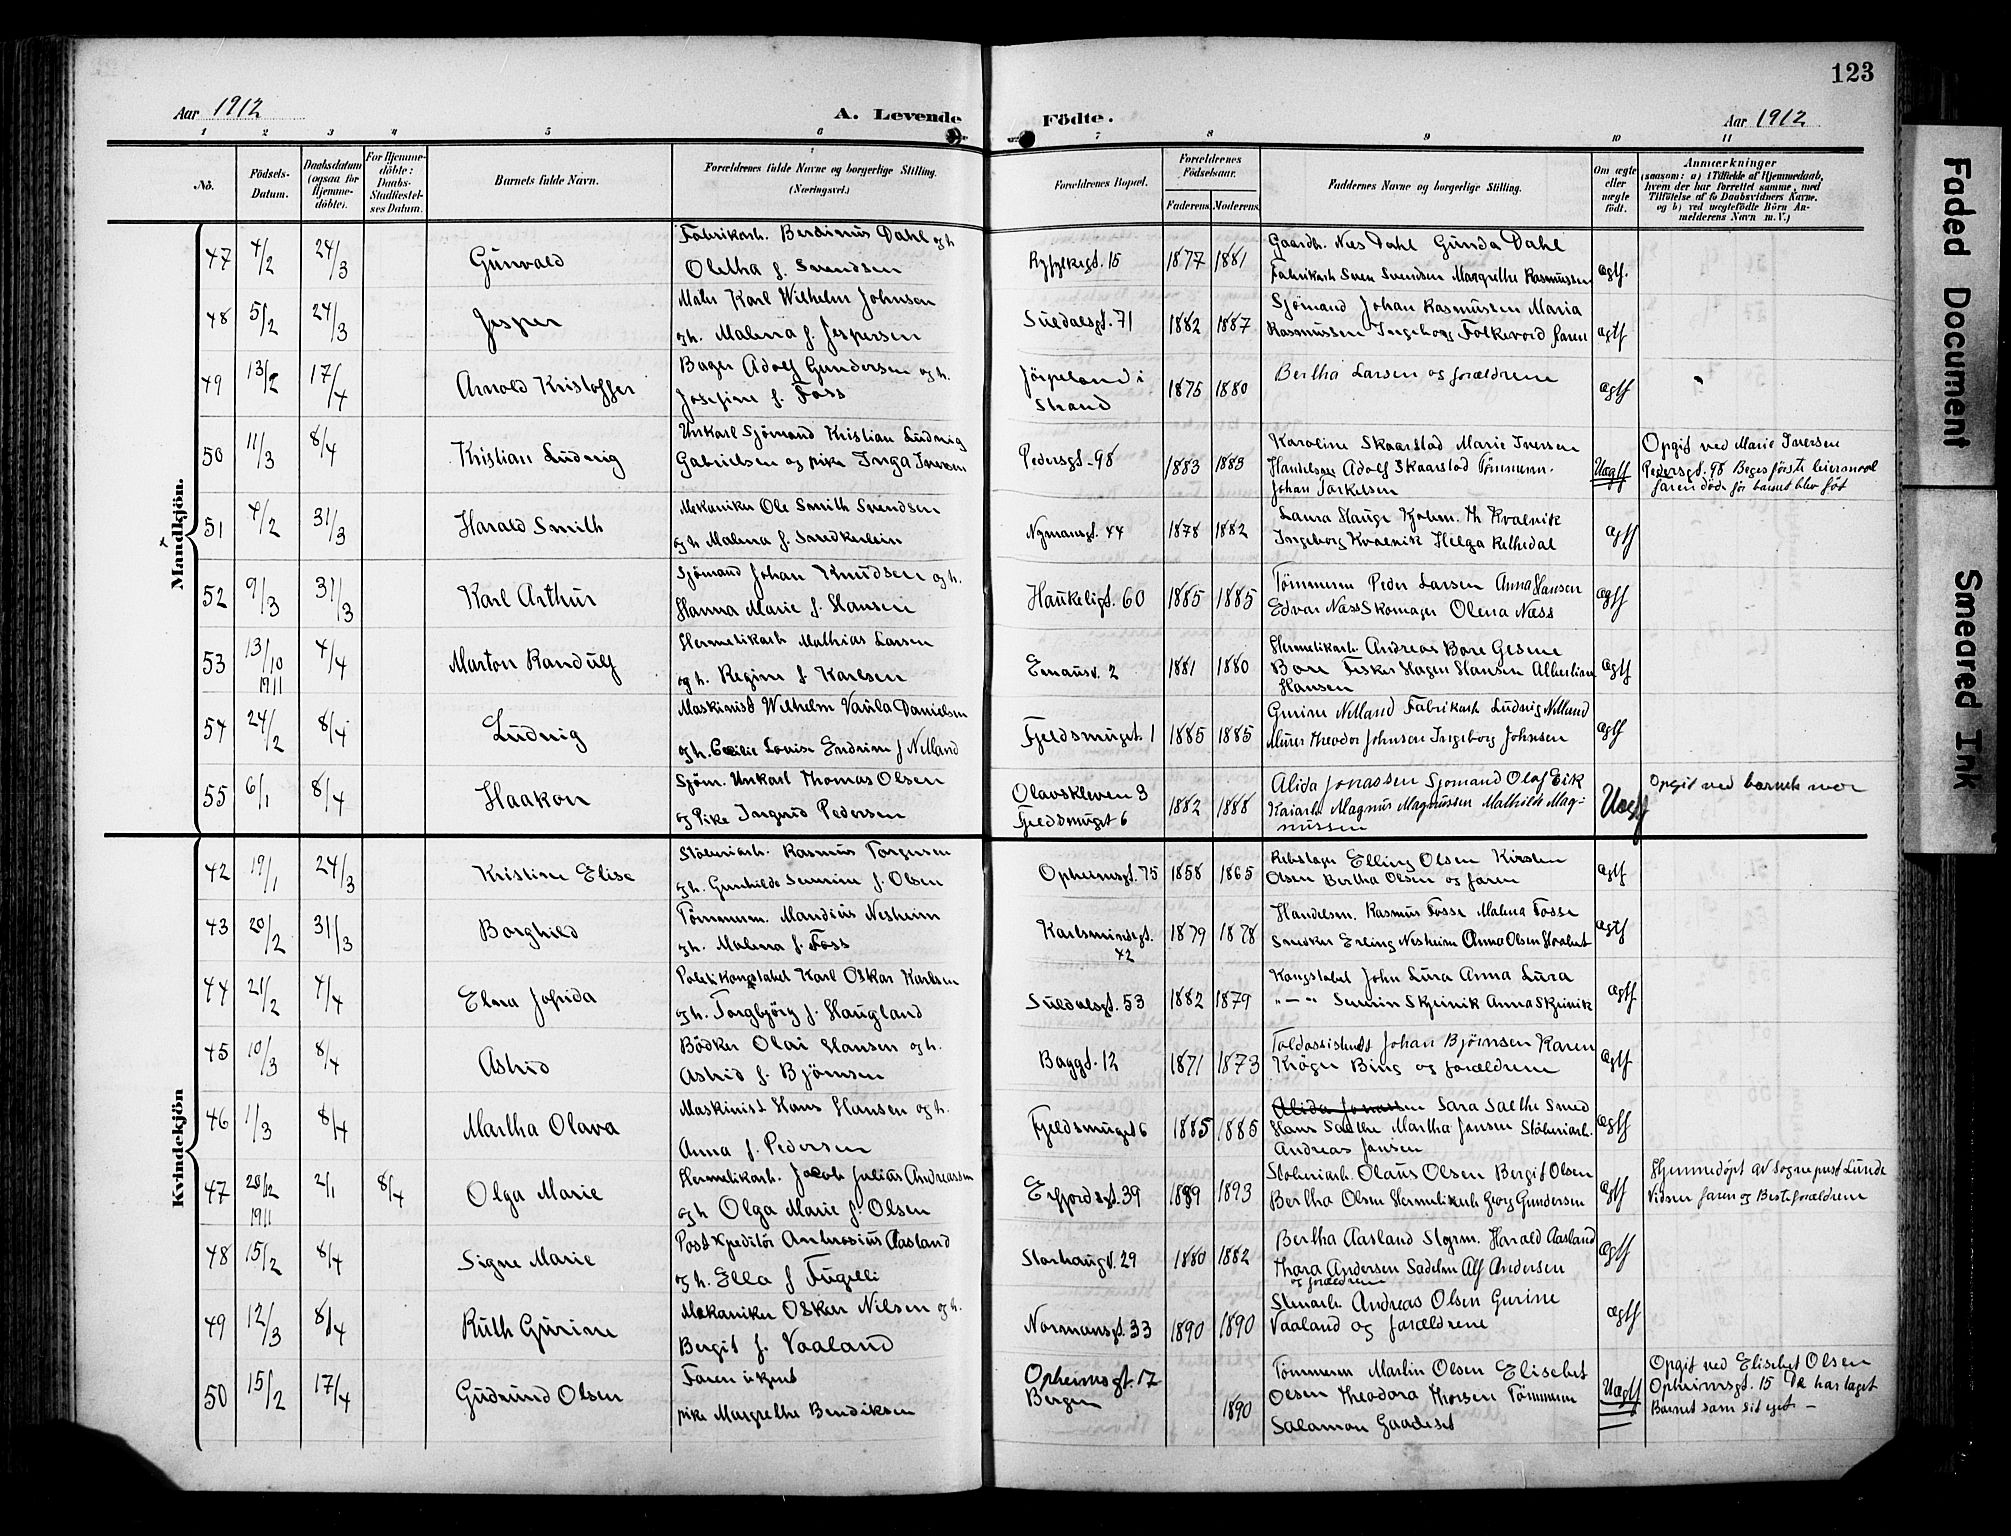 123
Aar 1912
A. Levende
Födte.
Aar 1912
1 2 3 4 5 6 7 8 9 10 11
No.
Födsels-
Datum.
Daabsdatum
(ogsaa for
Hjemme-
döbte).
For Hjemme-
döbte:
Daabs-
Stadfæstel-
ses Datum.
Barnets fulde Navn.
Forældrenes fulde Navne og borgerlige Stilling.
(Næringsvei.)
Forældrenes Bopæl.
Forældrenes
Födselsaar.
Faderens.
Moderens.
Faddernes Navne og borgerlige Stilling.
Om ægte
eller
uægte
födt.
Anmærkninger
(saasom: a) i Tilfælde af Hjemmedaab,
hvem der har forrettet samme, med
Tilföielse af to Daabsvidners Navne,
og b) ved uægtefödte Börn An-
melderens Navn m. V.)
Mandkjön.
47 4/2 24/3 Gunvald
Fabrikarb. Berdinus Dahl og h
Oletha f. Svendsen
Ryfylkegt. 15 1877 1881
Gaardb. Nels Dahl Gunda Dahl
Fabrikarb Sven Svendsen Margrethe Rasmussen
ægtf.
48 5/2 24/3 Jesper
Maler Karl Wilhelm Johnsen
og h. Malena f. Jespersen
Suldalsgt. 71 1882 1887
Sjömand Johan Rasmussen Maria
Rasmussen Ingeborg Folkevord faren
ægtf
49 13/2 17/4 Arnold Kristoffer
Bager Adolf Gundersen og h.
Josefine f. Foss
Jörpeland i
Strand
1875 1880
Bertha Larsen og forældrene
ægtf
50 11/3 8/4 Kristian Ludvig
Unkarl Sjömand Kristian Ludvig
Gabrielsen og pike Inga Iversen
Pedersgt. 98 1883 1883
Karoline Skaarstad Marie Iversen
Handelsag Adolf Skaarstad Tömmerm.
Johan Torkelsen
Uægtf
Opgit ved Marie Iversen
Pedersgt. 98 Beges förste leiermaal
Faren döde för barnet blev föt
51 4/2 31/3 Harald Smith
Mekaniker Ole Smith Svendsen
og h Malena f. Snedkerlein
Nymansgt. 44 1878 1882
Laura Hauge Kjobm. Th Kvalevik
Ingeborg Kvalevik Helga
ægtf
52 9/3 31/3 Karl Arthur
Sjömand Johan Knudsen og h.
Hanna Marie f. Hansen
Haukeligt. 60 1885 1885
Tömmerm Peder Larsen Anna Hansen
Edvar Næss Skomager Olena Næss
ægtf
53 13/10 1911 4/4 Marton Randulf
Hermetikarb Mathias Larsen
og h. Regine f. Karlsen
Emausv. 2 1881 1880
Hermetikarb. Andreas Bore Gesine
Bore Fisker Hagen Hansen Albertine
Hansen
ægtf
54 24/2 8/4 Ludvig
Maskinist Wilhelm Vaula Danielsen
og h. Cecilie Lovise Endrine f Nelland
Fjeldsmuget. 1 1885 1885
Gurine Nelland Fabrikarb Ludvig Nelland
Murer Theodor Johnsen Ingeborg Johnsen
ægtf
55 6/1 8/4 Haakon
Sjöm. Unkarl Thomas Olsen
og Pike Ingerid Pedersen
Olavskleven 3
Fjeldsmuget 6
1882 1888
Alida Jonassen Sjomand Olaf Eik
Kaiarb. Magnus Magnussen Mathilde Mag-
nussen
Uægtf
Opgit ved barnets mor
Kvindekjön
42 19/1 24/3 Kristine Elise
Stöberiarb. Rasmus Torgersen
og h. Gunhilde Severine f. Olsen
Opheimsgt. 75 1858 1865
Rebslager Elling Olsen Kirsten
Olsen Bertha Olsen og faren
ægtf
43 20/2 31/3 Borghild
Tömmerm. Mandius Nesheim
og h. Malena f. Foss
Karlsmindegt.
42
1879 1878
Handelsm. Rasmus Fosse Malena Fosse
Snedker Erling Nesheim Anna Olsen
ægtf
44 21/2 4/4 Elna Josida
Politikonstabel Karl Oskar Karlsen
og h. Torgbjörg f. Haugland
Suldalsgt. 53 1882 1879
Konstabel John Lura Anna Lura
" — " Severin Skjeivik Anna Skjeivik
ægtf.
45 10/3 8/4 Astrid
Bödker Olai Hansen og h.
Astrid f. Bjömsen
Baggt. 12 1871 1873
Toldassistent Johan Bjömsen Karen
Kröger Berg og forældrene
ægtf
46 1/3 8/4 Martha Olava
Maskinist Hans Hansen og h.
Anna f. Pedersen
Fjeldsmuget 6 1885 1885
Alida Jonassen Sara Saelhe Smed
Hans Saelhe Martha Jansen Stöberiarb.
Andreas Jansen
ægtf
47 28/12 1911 2/1 8/4 Olga Marie
Hermetikarb. Jacob Julius Andreassen
og h Olga Marie f. Olsen
Erfjordsgt. 39 1889 1893
Stoberiarb. Olaus Olsen Bergit Olsen
Bertha Olsen Hermetikarb Georg Gundersen
ægtf
Hjemmedöpt av Sogneprest Lunde
Vidner faren og Besteforældrene
48 15/2 8/4 Signe Marie
Postexpeditör Ambrosius Aasland
og h. Ella f Fugelli
Storhaugv. 29 1880 1882
Bertha Aasland Styrm. Harald Aasland
Thora Andersen Sadelm Alf Andersen
og forældrene
ægtf
49 12/3 8/4 Ruth Gurine
Mekaniker Oskar Nilsen og h.
Bergit f. Vaaland
Normansgt. 33 1890 1890
Stenarb. Andreas Olsen Gurine
Vaaland og forældrene
ægtf
50 15/2 17/4 Gudrund Olsen
Faren ukjent
pike Margrethe Bendiksen
Opheimsgt. 17
Bergen
1890
Tömmerm Martin Olsen Elisebet
Olsen Theodora Thorsen Tömmerm
Salamon Gaadeset
Uægtf
Opgit ved Elisebet Olsen
Opheimsgt. 15 De har taget
Barnet som sit eget —
Faded Document
Smeared Ink